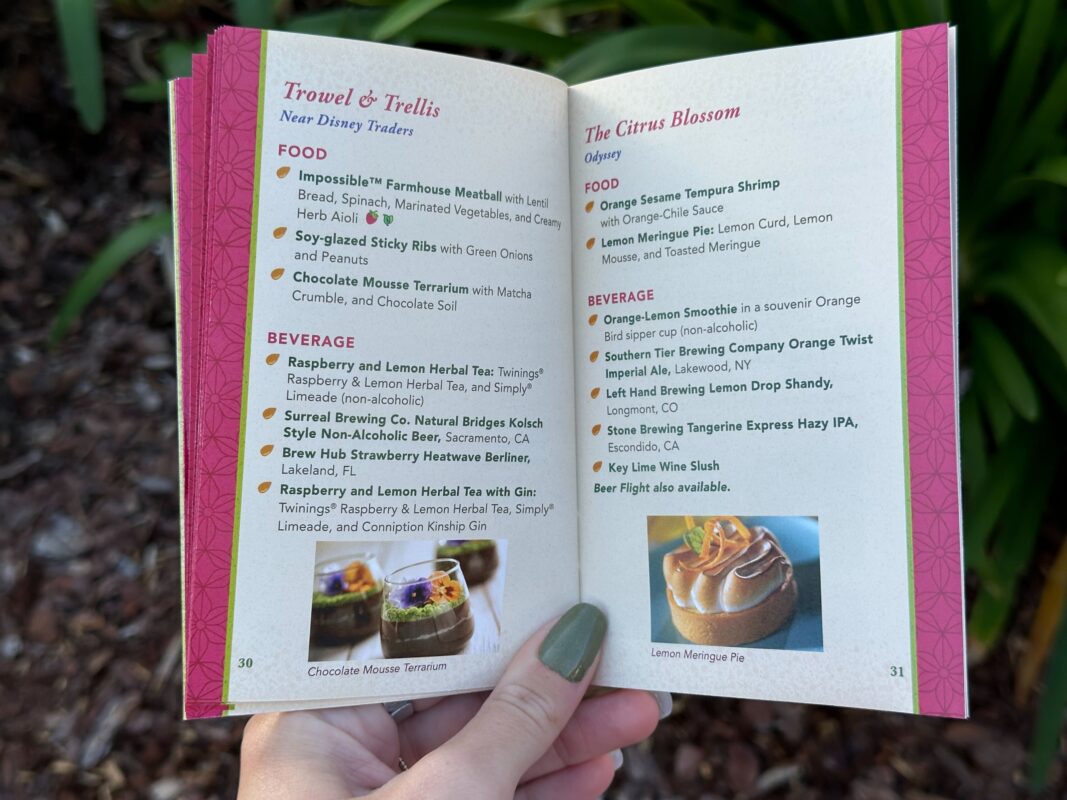 Trowel & Trellis
Near Disney Traders
FOOD
Impossible™ Farmhouse Meatball with Lentil
Bread, Spinach, Marinated Vegetables, and Creamy
Herb Aioli
Soy-glazed Sticky Ribs with Green Onions
and Peanuts
Chocolate Mousse Terrarium with Matcha
Crumble, and Chocolate Soil
BEVERAGE
Raspberry and Lemon Herbal Tea: Twinings®
Raspberry & Lemon Herbal Tea, and Simply®
Limeade (non-alcoholic)
Surreal Brewing Co. Natural Bridges Kolsch
Style Non-Alcoholic Beer, Sacramento, CA
Brew Hub Strawberry Heatwave Berliner,
Lakeland, FL
Raspberry and Lemon Herbal Tea with Gin:
Twinings® Raspberry & Lemon Herbal Tea, Simply®
Limeade, and Conniption Kinship Gin
Chocolate Mousse Terrarium
30
The Citrus Blossom
Odyssey
FOOD
Orange Sesame Tempura Shrimp
with Orange-Chile Sauce
Lemon Meringue Pie: Lemon Curd, Lemon
Mousse, and Toasted Meringue
BEVERAGE
Orange-Lemon Smoothie in a souvenir Orange
Bird sipper cup (non-alcoholic)
Southern Tier Brewing Company Orange Twist
Imperial Ale, Lakewood, NY
Left Hand Brewing Lemon Drop Shandy,
Longmont, CO
Stone Brewing Tangerine Express Hazy IPA,
Escondido, CA
Key Lime Wine Slush
Beer Flight also available.
Lemon Meringue Pie
31